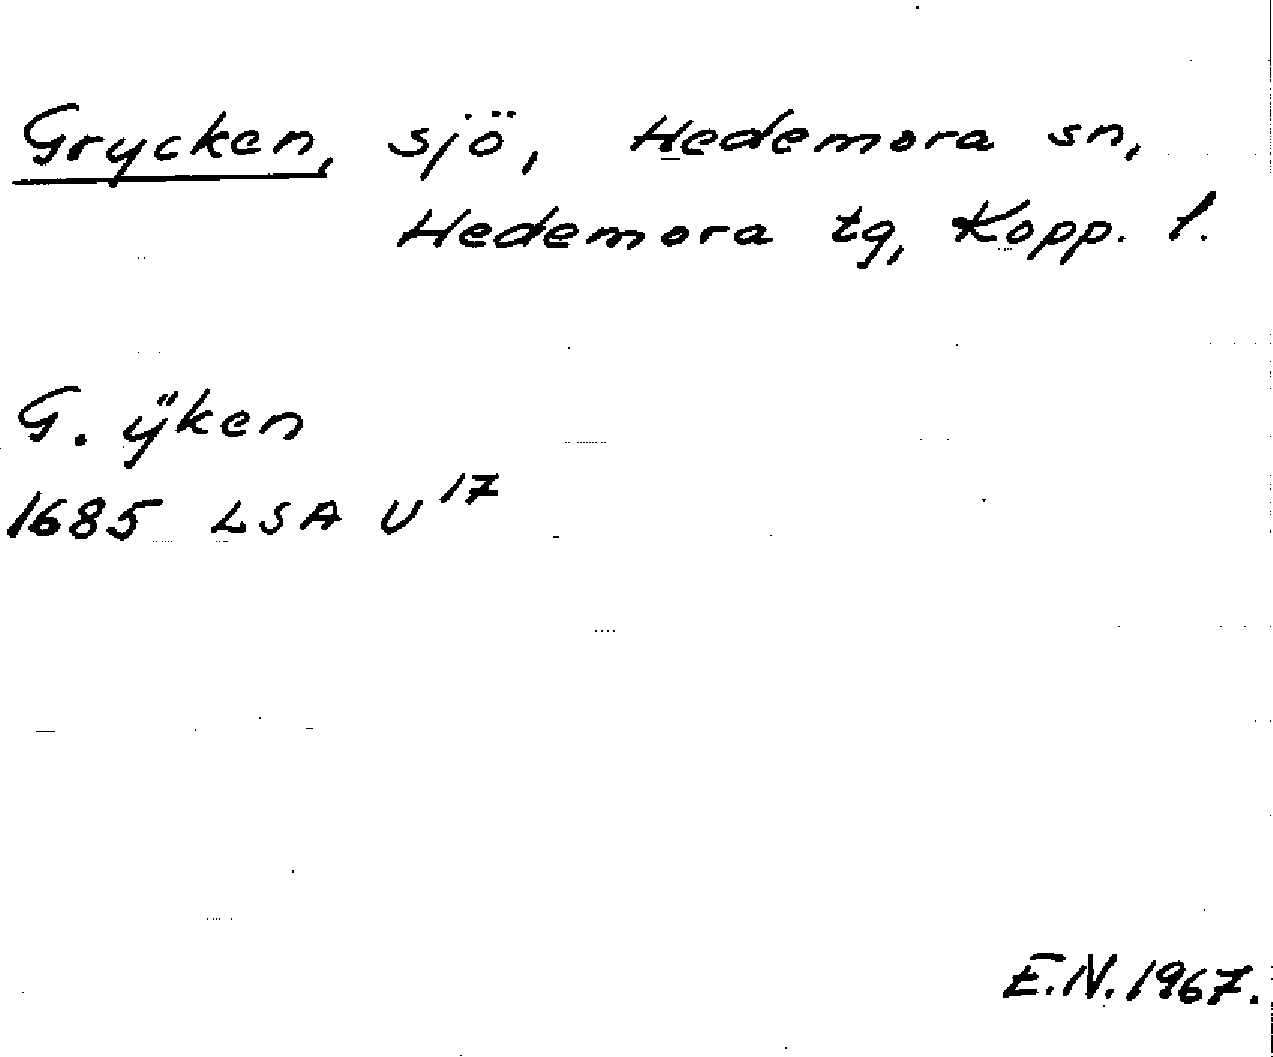 Grycken, sjö, Hedemora sn,
Hedemora tg, Kopp. l.
G. ÿken
1685 LSA U 17
E.N. 1967.